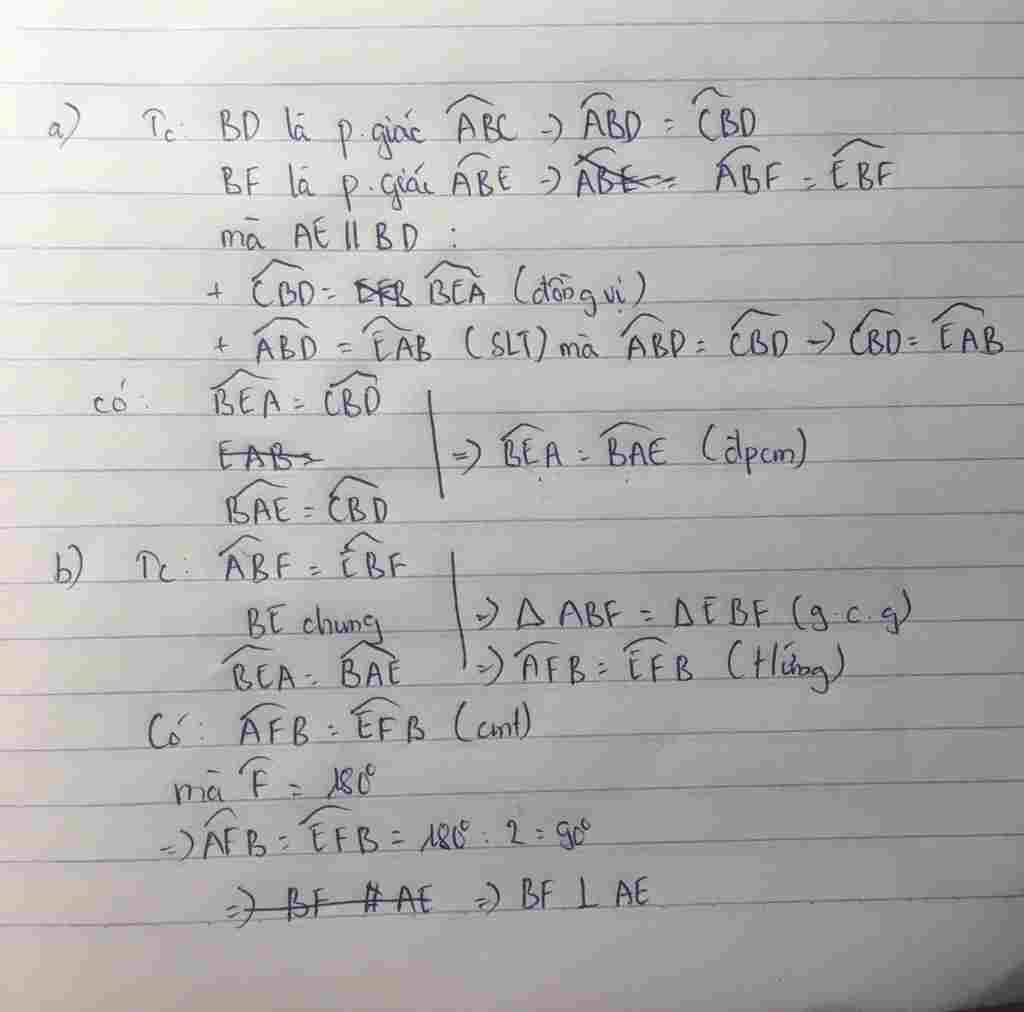 a) Tc: BD là p.giác ABC → ABD = CBD
BF là p.giác ABE → ABE = ABF = EBF
mà AE // BD :
+ CBD = BEA (đồng vị)
+ ABD = EAB (SLT) mà ABD = CBD → CBD = EAB
có: BEA = CBD
EAB =
BAE = CBD
=> BEA = BAE (đpcm)
b) Tc: ABF = EBF
BE chung
BEA = BAE
=> Δ ABF = Δ EBF (g.c.g)
=> AFB = EFB (t/ứng)
Có: AFB = EFB (cmt)
mà F = 180°
=> AFB = EFB = 180° : 2 = 90°
=> BF // AE => BF ⊥ AE